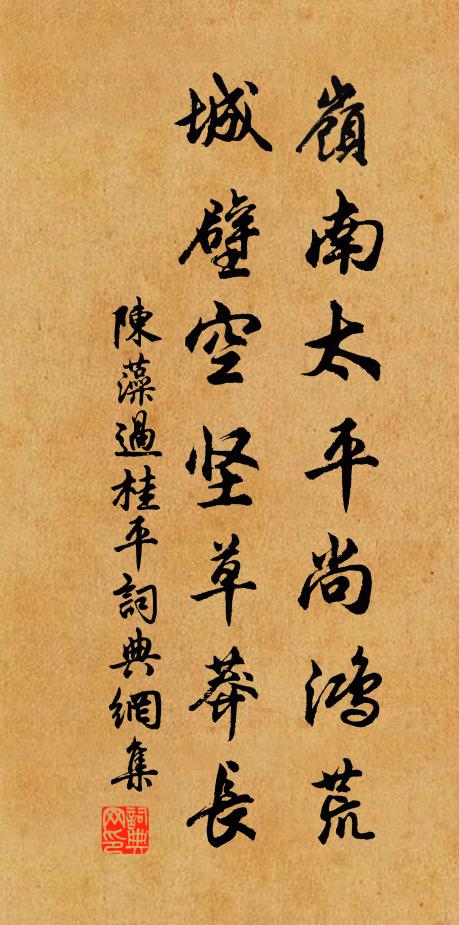 嶺南太平尚鴻荒
城壁空坚草莽長
陳藻過桂平詞典網集
詞典网印